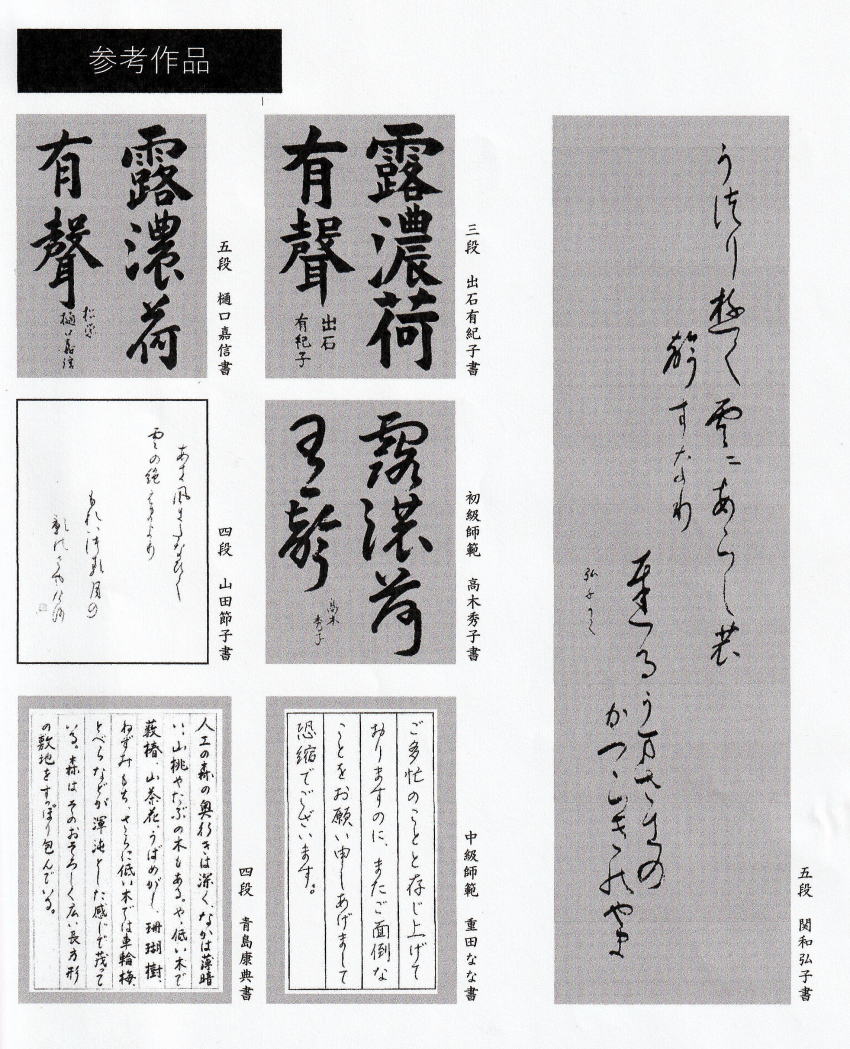 参考作品
露濃荷
有聲
出石
有紀子
三段 出石有紀子書
露濃荷
有聲
樋口嘉信
五段 樋口嘉信書
露濃荷
有聲
高木
秀子
初級師範 高木秀子書
四段 山田節子書
ご多忙のことと存じ上げて
おりますのに、またご面倒な
ことをお願い申しあげまして
恐縮でございます。
中級師範 重田なな書
人工の森の奥行きは深く、なかは薄暗
い。山桃やたぶの木もある。やゝ低い木で
藪椿、山茶花、うばめがし、珊瑚樹、
ねずみもち、さらに低い木では車輪梅、
とべらなどが渾沌とした感じで茂って
いる。森はそのおそろしく広い長方形
の敷地をすっぽり包んでいる。
四段 青島康典書
五段 関和弘子書